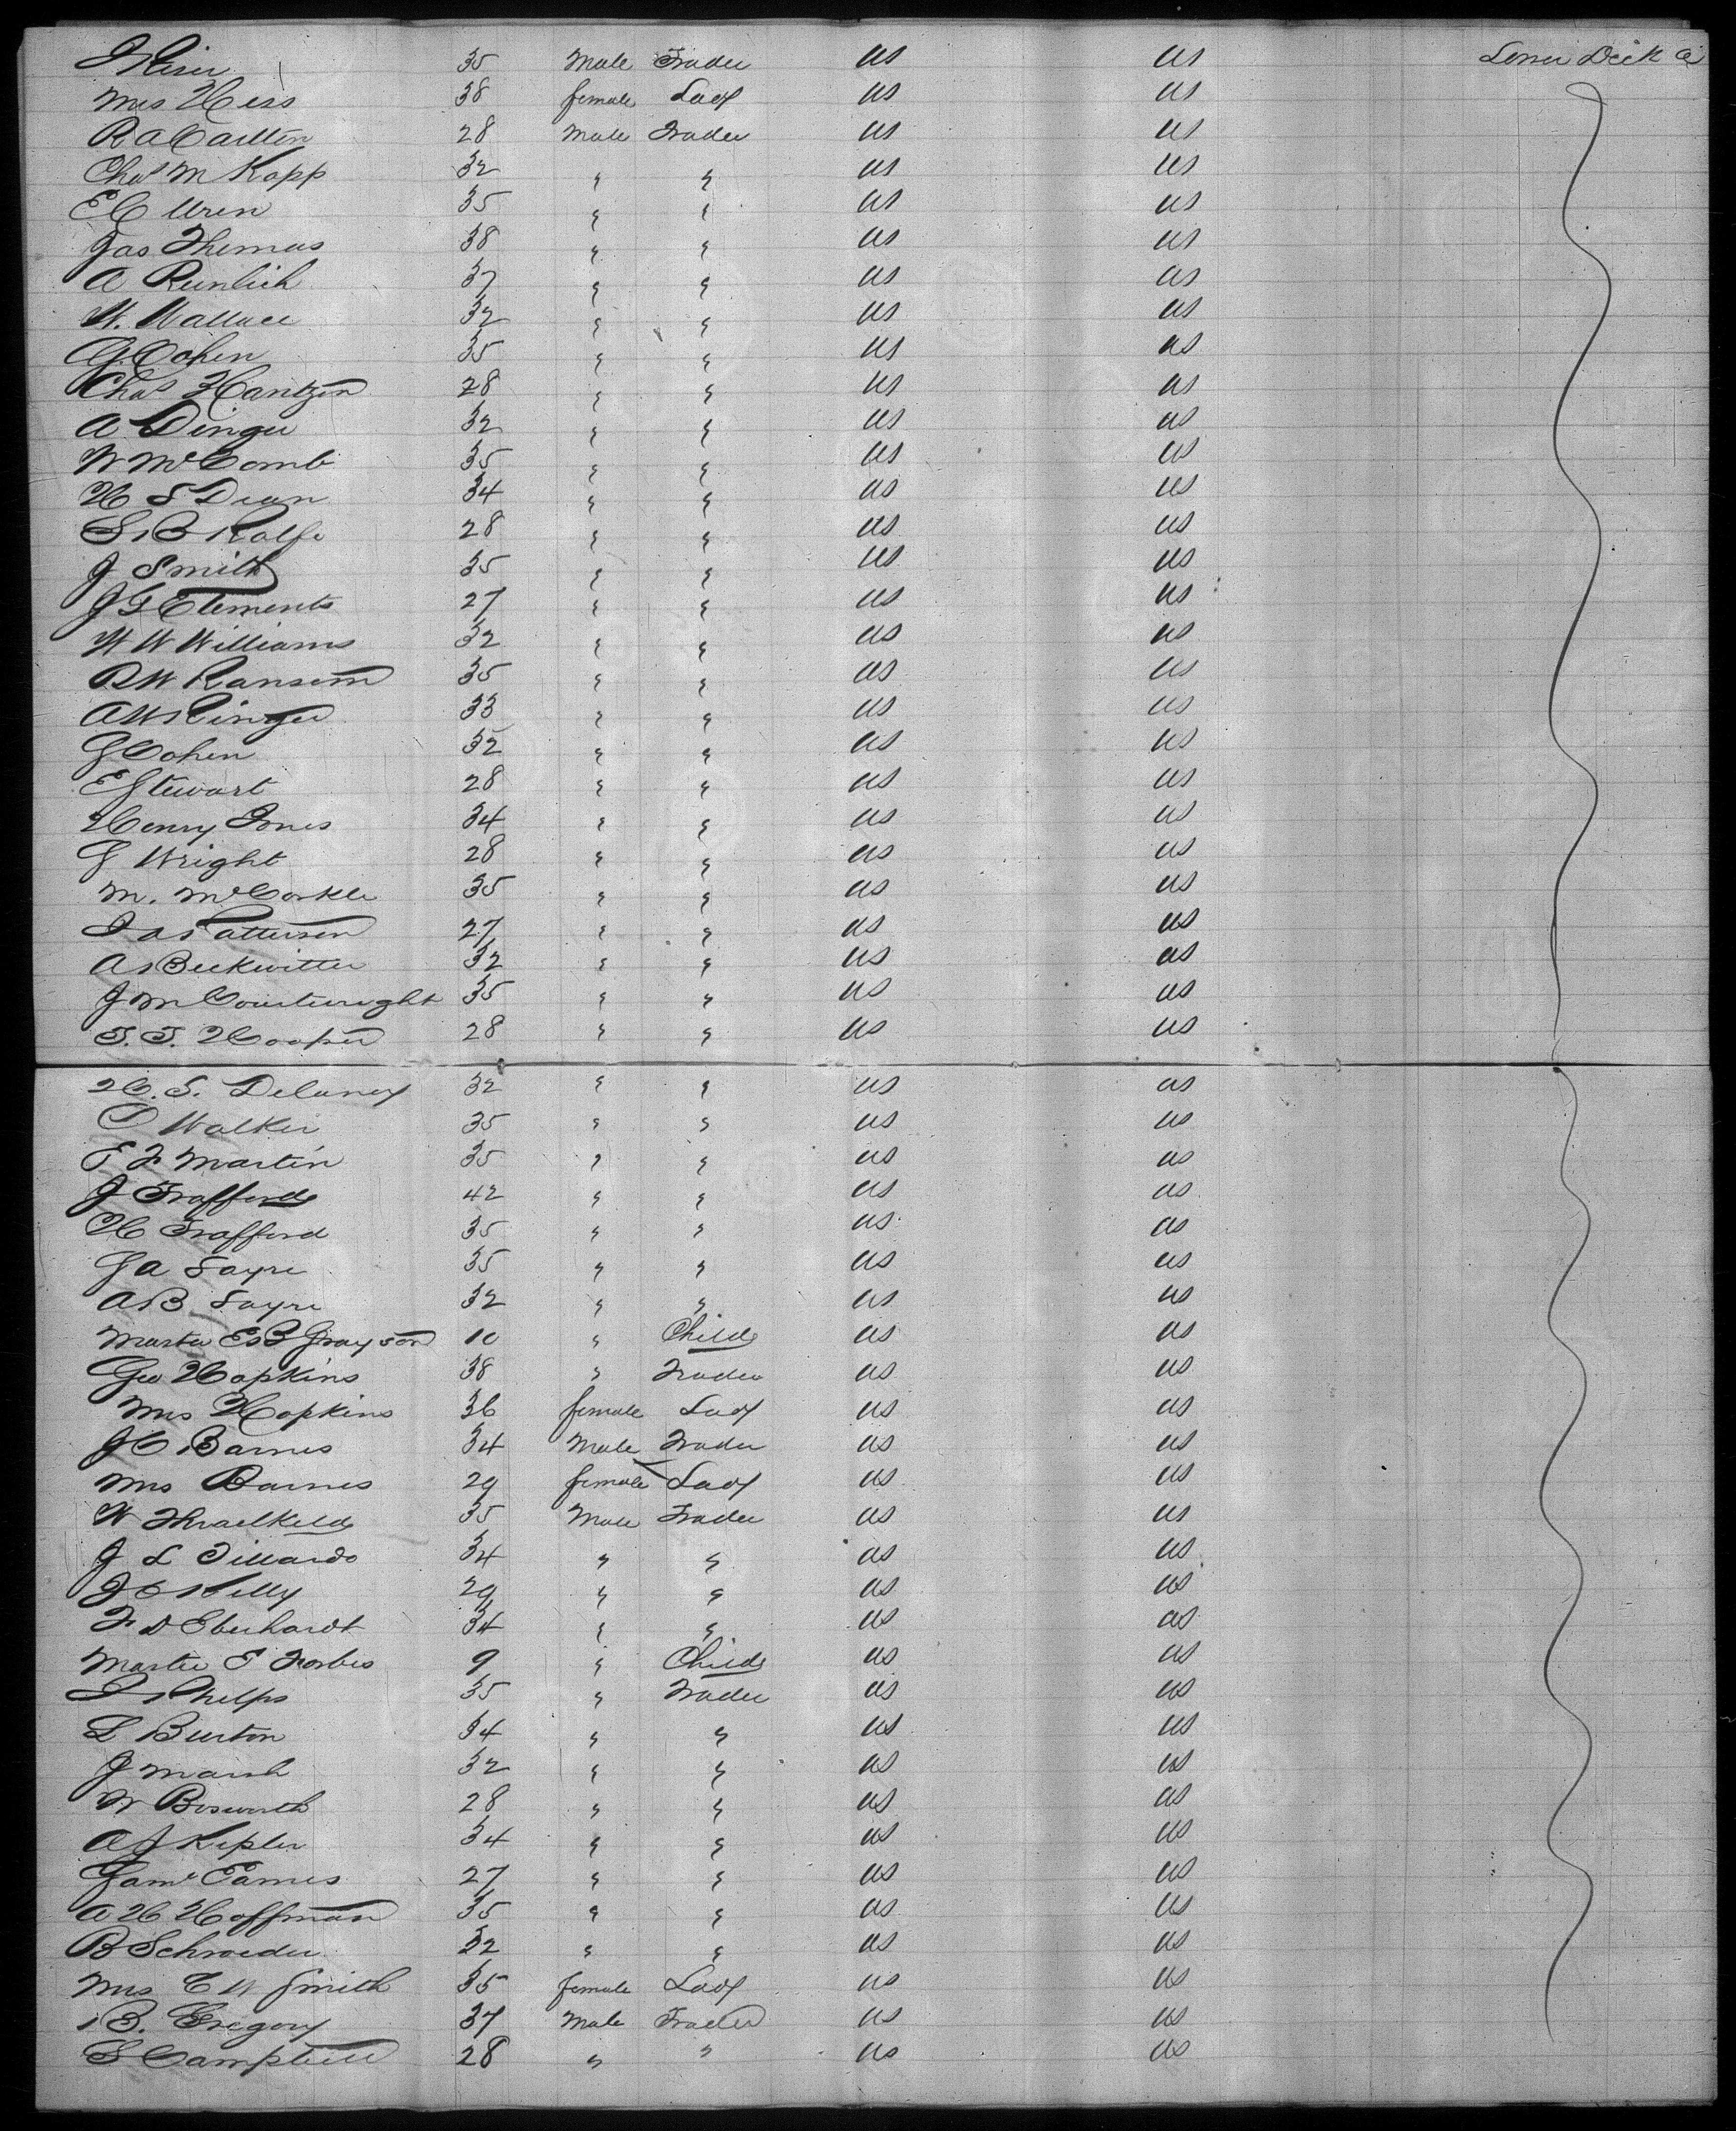 35 Male Trader US US Lower Deck
Mrs Hess 38 female Lady US US
R A Carlton 28 Male Trader US US
Chas M Kopp 32 " " US US
E C Uren 35 " " US US
Jas Thomas 38 " " US US
A 37 " " US US
W. Wallace 32 " " US US
G Cohen 35 " " US US
Chas Hantzen 28 " " US US
A Dinger 32 " " US US
W McComb 35 " " US US
H S Dean 34 " " US US
S B Rolfe 28 " " US US
J Smith 35 " " US US
J G Clements 27 " " US US
W W Williams 32 " " US US
R W Ransom 35 " " US US
A W Ringer 33 " " US US
G Cohen 32 " " US US
E Stewart 28 " " US US
Henry Jones 34 " " US US
G Wright 28 " " US US
M. McCorkle 35 " " US US
J A Patterson 27 " " US US
A Beckwitter 32 " " US US
J M Courtwright 35 " " US US
T. T. Hooper 28 " " US US
H. S. Delaney 32 " " US US
O Walker 35 " " US US
E F Martin 35 " " US US
J Trafford 42 " " US US
H Trafford 35 " " US US
G A Sayre 35 " " US US
A B Sayre 32 " " US US
Master E B Grayson 10 " Child US US
Geo Hopkins 38 " Trader US US
Mrs Hopkins 36 female Lady US US
J C Barnes 34 Male Trader US US
Mrs Barnes 29 female Lady US US
W Thraelkeld 35 Male Trader US US
J L Dillards 34 " " US US
J C Kelly 29 " " US US
F D Eberhardt 34 " " US US
Master E Forbes 9 " Child US US
J Phelps 35 " Trader US US
L Burton 34 " " US US
J Marsh 32 " " US US
W Bosworth 28 " " US US
A J Kepler 34 " " US US
Saml Eames 27 " " US US
A H Hoffman 35 " " US US
B Schroeder 32 " " US US
Mrs C W Smith 35 female Lady US US
B. Gregory 37 Male Trader US US
S Campbell 28 " " US US